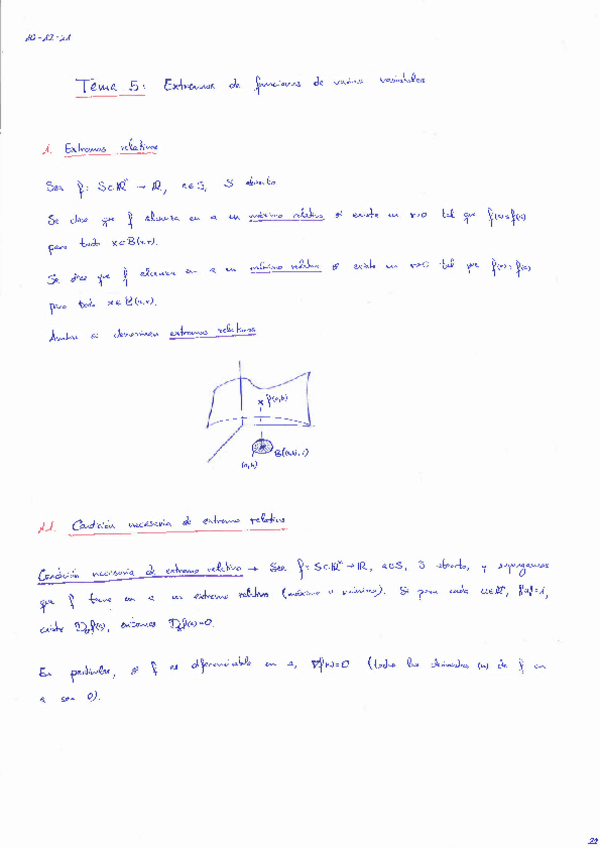 Tema 5: Extremos de funciones de varias variables
1. Extremos relativos
Sea f: S⊂ℝⁿ → ℝ, a∈S, S abierto
Se dice que f alcanza en a un máximo relativo si existe un r>0 tal que f(x)≤f(a)
para todo x∈B(a,r).
Se dice que f alcanza en a un mínimo relativo si existe un r>0 tal que f(x)≥f(a)
para todo x∈B(a,r).
Ambos se denominan extremos relativos
f(a,b)
B((a,b), r)
(a,b)
1.1. Condición necesaria de extremo relativo
Condición necesaria de extremo relativo → Sea f: S⊂ℝⁿ→ℝ, a∈S, S abierto, y supongamos
que f tiene en a un extremo relativo (máximo o mínimo). Si para cada u∈ℝⁿ, ‖u‖=1,
existe f(a), entonces f(a)=0.
En particular, si f es diferenciable en a, ∇f(a)=0 (todas las derivadas de f en
a son 0).